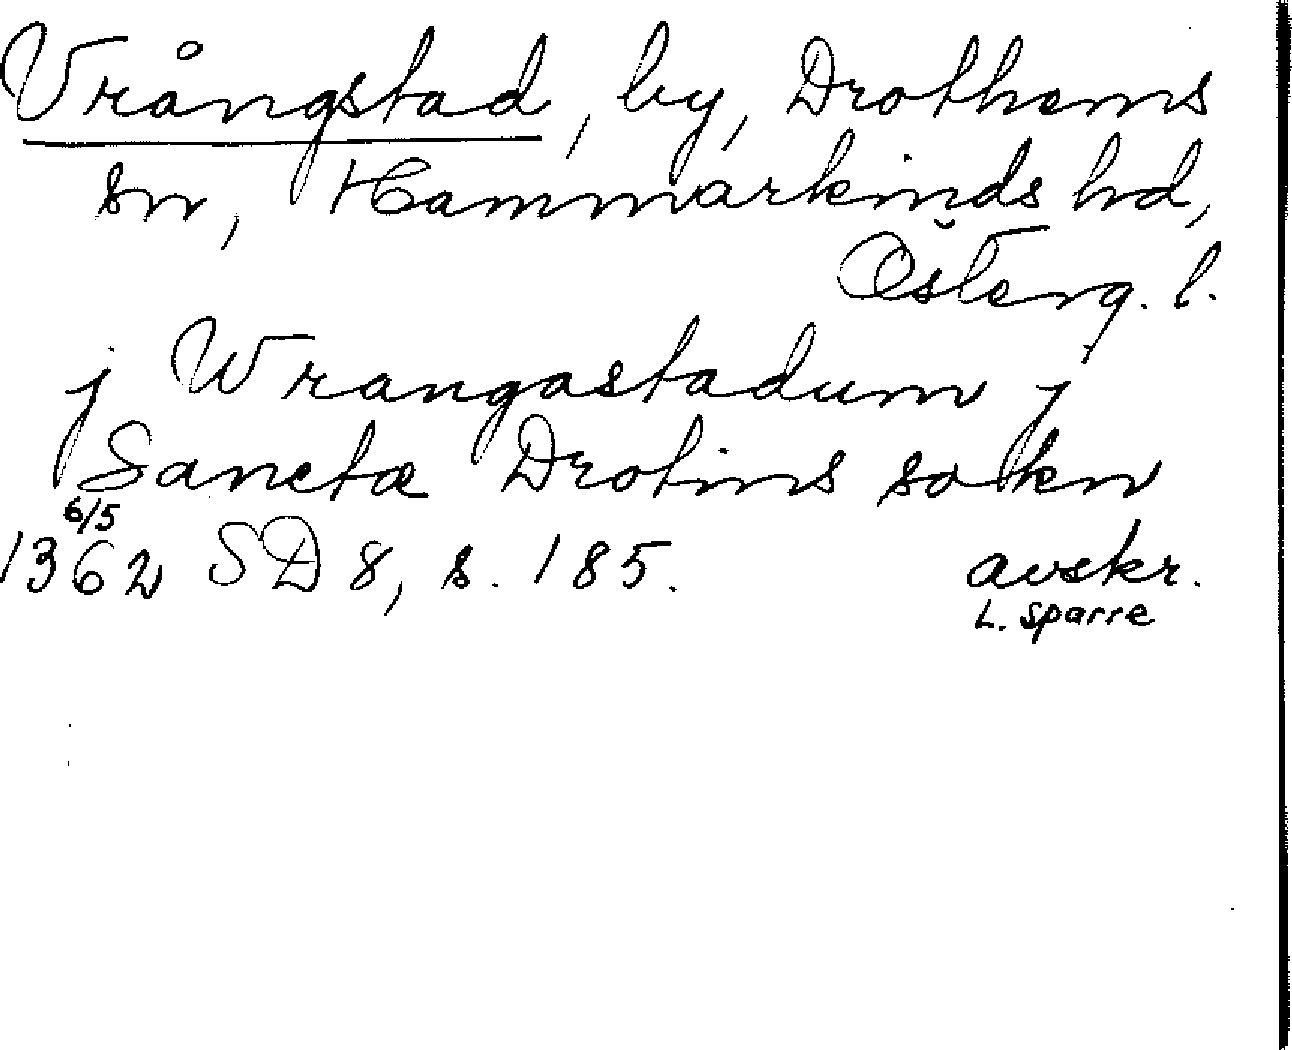 Vrångstad, by, Drothems
sn, Hammarkinds hd,
Österg. l.
j Wrangastadum j
Sanctæ Drotins sokn
6/5
1362 SD 8, s. 185. avskr.
L. Sparre